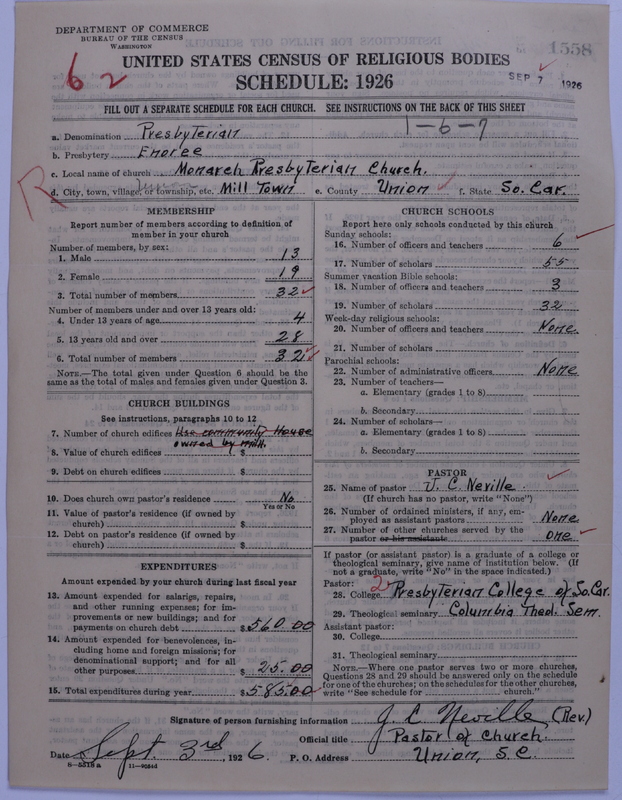 DEPARTMENT OF COMMERCE
BUREAU OF THE CENSUS
WASHINGTON
1558
UNITED STATES CENSUS OF RELIGIOUS BODIES
SCHEDULE: 1926
SEP 7 1926
62
FILL OUT A SEPARATE SCHEDULE FOR EACH CHURCH. SEE INSTRUCTIONS ON THE BACK OF THIS SHEET
1-6-7
a. Denomination Presbyterian
b. Presbytery Enoree
c. Local name of church Monarch Presbyterian Church.
R
d. City, town, village, or township, etc. Mill Town e. County Union f. State So. Car.
MEMBERSHIP
Report number of members according to definition of
member in your church
Number of members, by sex:
1. Male 13
2. Female 19
3. Total number of members 32
Number of members under and over 13 years old:
4. Under 13 years of age 4
5. 13 years old and over 28
6. Total number of members 32
NOTE.—The total given under Question 6 should be the
same as the total of males and females given under Question 3.
CHURCH BUILDINGS
See instructions, paragraphs 10 to 12
7. Number of church edifices Use community House
owned by mill.
8. Value of church edifices $
9. Debt on church edifices $
10. Does church own pastor's residence No
Yes or No
11. Value of pastor's residence (if owned by
church) $
12. Debt on pastor's residence (if owned by
church) $
EXPENDITURES
Amount expended by your church during last fiscal year
13. Amount expended for salaries, repairs,
and other running expenses; for im-
provements or new buildings; and for
payments on church debt $560.00
14. Amount expended for benevolences, in-
cluding home and foreign missions; for
denominational support; and for all
other purposes $25.00
15. Total expenditures during year $585.00
CHURCH SCHOOLS
Report here only schools conducted by this church
Sunday schools:
16. Number of officers and teachers 6
17. Number of scholars 55
Summer vacation Bible schools:
18. Number of officers and teachers 3
19. Number of scholars 32
Week-day religious schools:
20. Number of officers and teachers None
21. Number of scholars
Parochial schools:
22. Number of administrative officers None
23. Number of teachers—
a. Elementary (grades 1 to 8)
b. Secondary
24. Number of scholars—
a. Elementary (grades 1 to 8)
b. Secondary
PASTOR
25. Name of pastor J. C. Neville
(If church has no pastor, write "None")
26. Number of ordained ministers, if any, em-
ployed as assistant pastors None
27. Number of other churches served by the
pastor or his assistant one
If pastor (or assistant pastor) is a graduate of a college or
theological seminary, give name of institution below. (If
not a graduate, write "No" in the space indicated.)
Pastor: 2
28. College Presbyterian College of So. Car.
29. Theological seminary Columbia Theol. Sem.
Assistant pastor:
30. College
31. Theological seminary
NOTE.—Where one pastor serves two or more churches,
Questions 28 and 29 should be answered only on the schedule
for one of the churches; on the schedules for the other churches,
write "See schedule for church."
Signature of person furnishing information J. C. Neville (Rev.)
Official title Pastor of Church.
Date Sept. 3rd, 1926. P. O. Address Union, S.C.
8-5518a 11-9084d